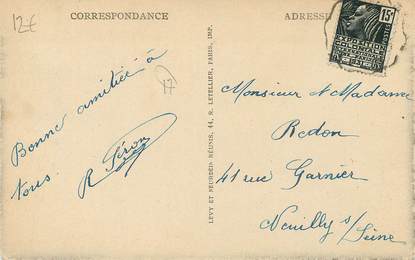 12€
CORRESPONDANCE
ADRESSE
15c
EXPOSITION
COLONIALE
INTERNATIONALE
POSTES
17
Bonne amitié à
tous.
R Péron
LEVY ET NEURDEIN RÉUNIS, 44, R. LETELLIER, PARIS, IMP.
Monsieur et Madame
Redon
41 rue Garnier
Neuilly s/
Seine